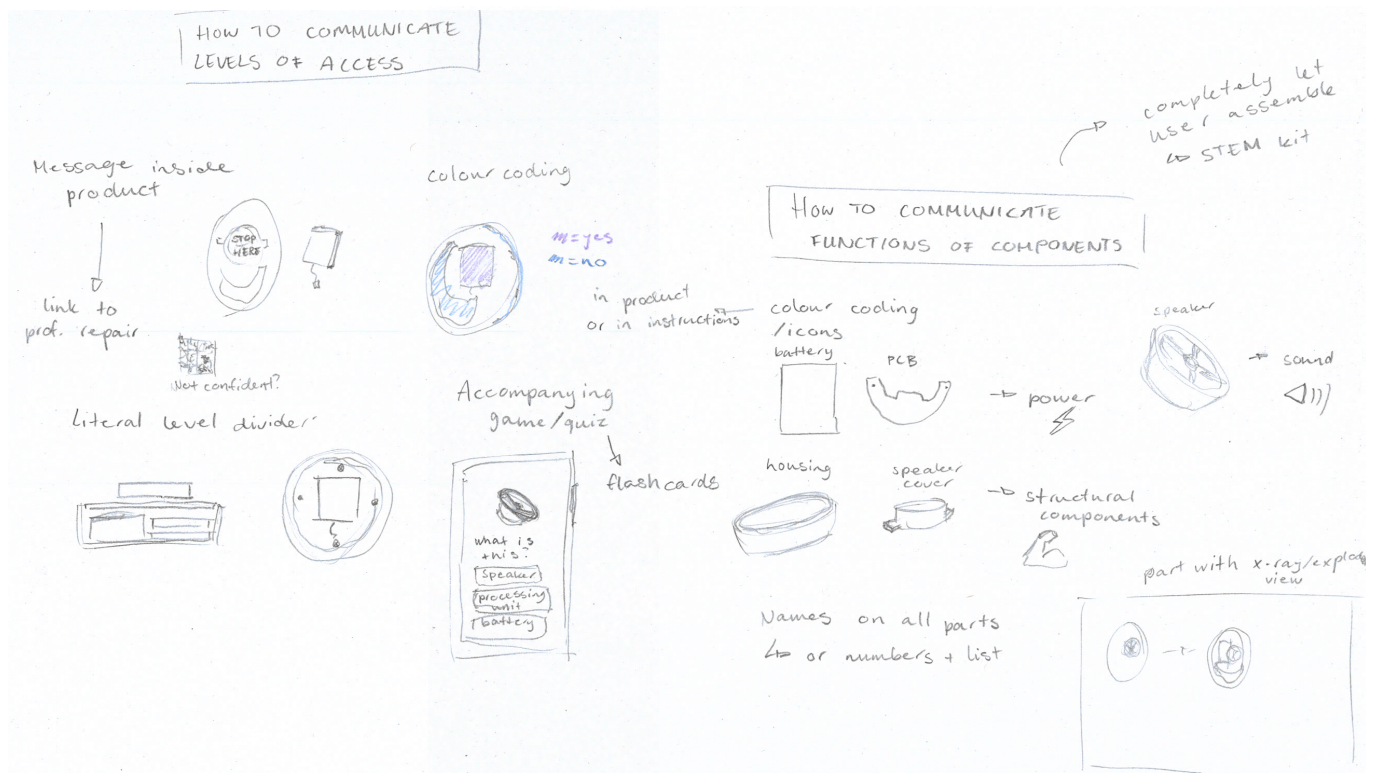 HOW TO COMMUNICATE
LEVELS OF ACCESS
Message inside
product
link to
prof. repair
STOP
HERE
Not confident?
colour coding
= yes
= no
Literal level divider
Accompanying
game/quiz
flashcards
what is
this?
speaker
processing
unit
battery
completely let
user assemble
STEM kit
HOW TO COMMUNICATE
FUNCTIONS OF COMPONENTS
in product
or in instructions
colour coding
/icons
battery
PCB
power
speaker
sound
housing
speaker
cover
structural
components
Names on all parts
or numbers + list
part with x-ray/explode
view